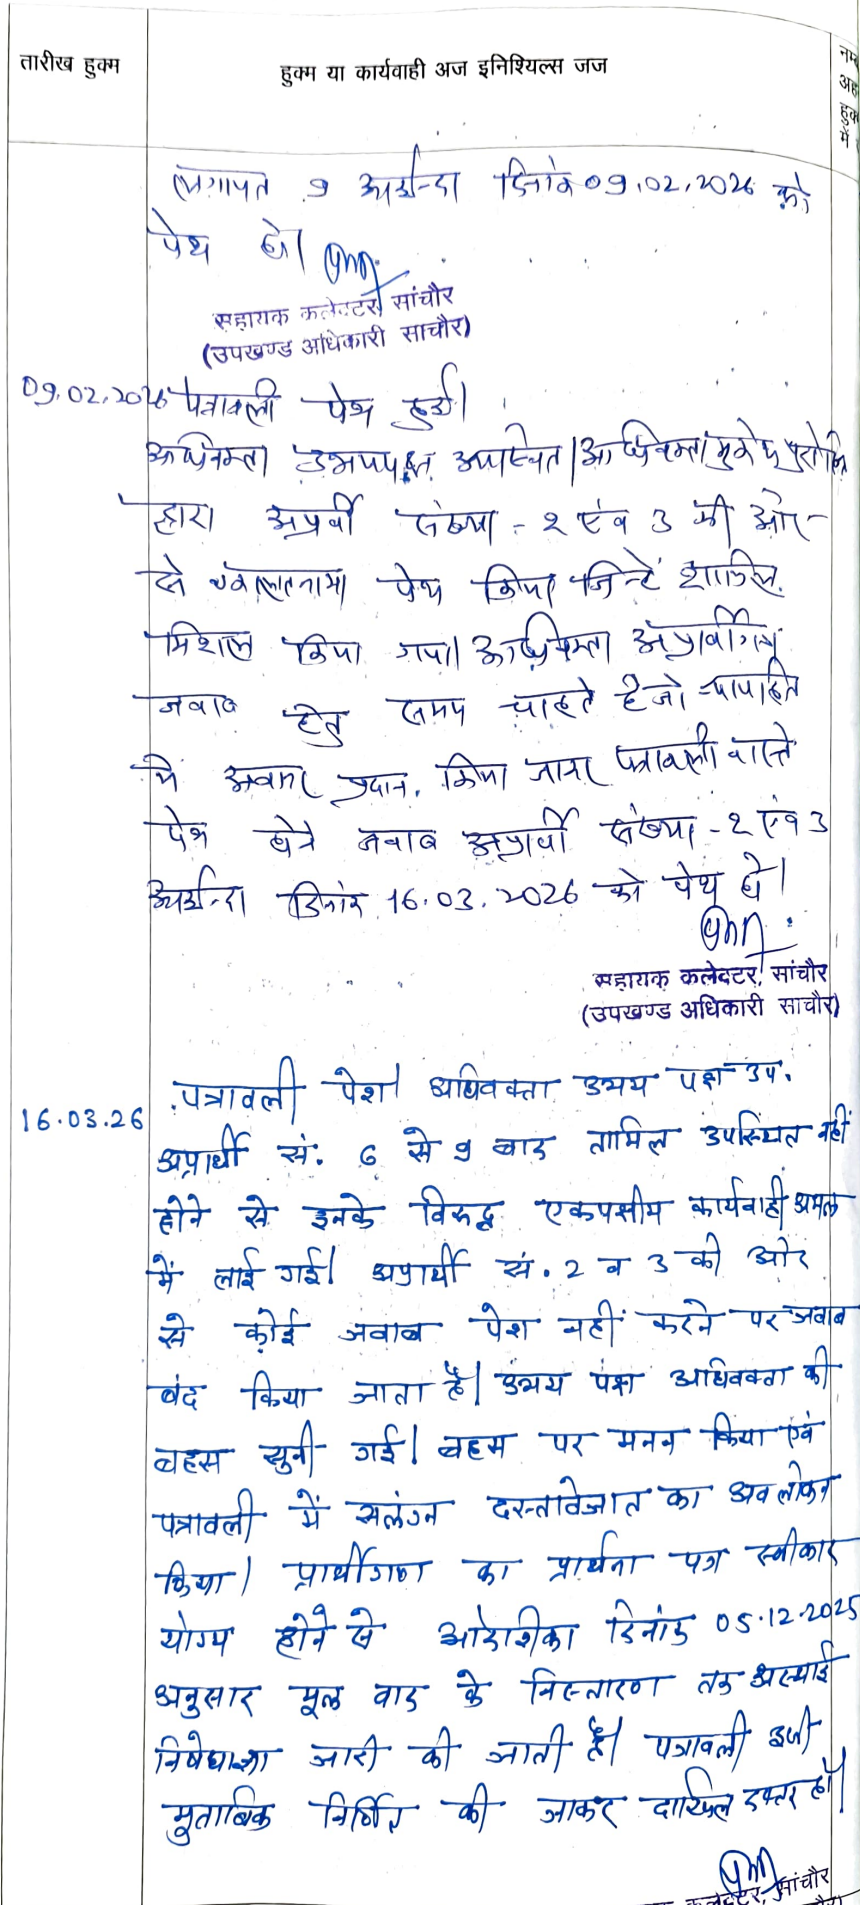 तारीख हुक्म
हुक्म या कार्यवाही अज इनिश्यिल्स जज
नम
अह
हुक
में
9 आईन्दा दिनांक 09.02.2026 को
पेश हो।
सहायक कलेक्टर, सांचौर
(उपखण्ड अधिकारी साचौर)
09.02.2026 पत्रावली पेश हुई।
अधिवक्ता उभयपक्ष उपस्थित। अधिवक्ता मुकेश पुरोहित
द्वारा अप्रार्थी संख्या - 2 एंव 3 की ओर
से वकालतनामा पेश किया जिन्हें शामिल
मिशल किया गया। अधिवक्ता अप्रार्थीगण
जवाब हेतु समय चाहते है जो न्यायहित
में अवसर प्रदान किया जाकर पत्रावली वास्ते
पेश होने जवाब अप्रार्थी संख्या - 2 एंव 3
आईन्दा दिनांक 16.03.2026 को पेश हो।
सहायक कलेक्टर, सांचौर
(उपखण्ड अधिकारी साचौर)
16.03.26 पत्रावली पेश। अधिवक्ता उभय पक्ष उप.
अप्रार्थी सं. 6 से 9 बाद तामिल उपस्थित नहीं
होने से इनके विरुद्ध एकपक्षीय कार्यवाही अमल
में लाई गई। अप्रार्थी सं. 2 व 3 की ओर
से कोई जवाब पेश नहीं करने पर जवाब
बंद किया जाता है। उभय पक्ष अधिवक्ता की
बहस सुनी गई। बहस पर मनन किया एवं
पत्रावली में सलंग्न दस्तावेजात का अवलोकन
किया। प्रार्थीगण का प्रार्थना पत्र स्वीकार
योग्य होने से आदेशिका दिनांक 05.12.2025
अनुसार मूल वाद के निस्तारण तक अस्थाई
निषेधाज्ञा जारी की जाती है। पत्रावली इसी
मुताबिक निर्णित की जाकर दाखिल दफ्तर हो।
कलेक्टर, सांचौर